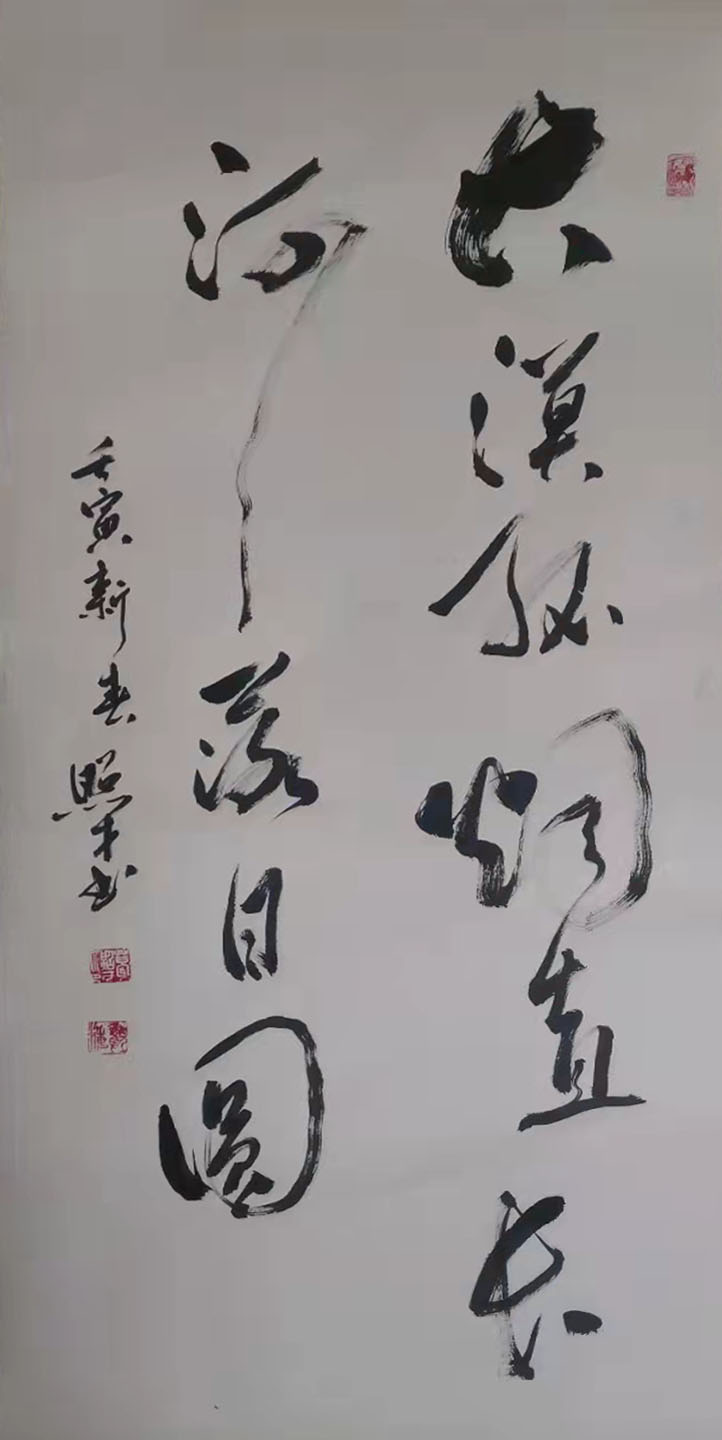 大漠孤烟直长
河落日圆
壬寅新春照才书